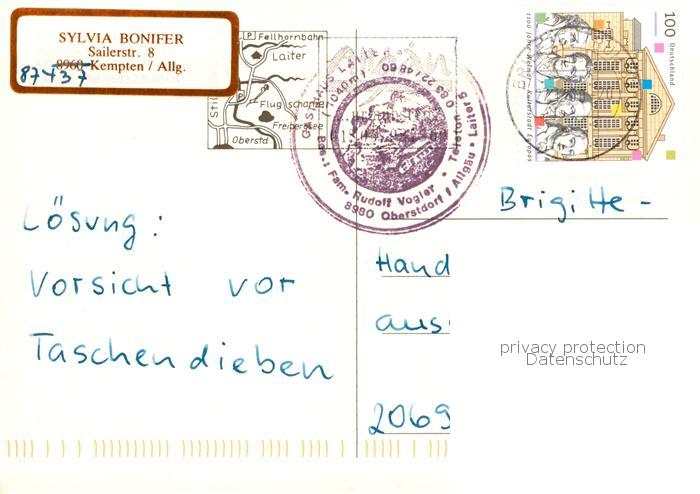 SYLVIA BONIFER
Sailerstr. 8
8960 Kempten / Allg.
87437
P Fellhornbahn
Laiter
P
Flugschanze
Freibergsee
Oberstd
GASTHAUS LAITER
(1040m)
Telefon 08322/4860
Bes.: Fam. Rudolf Vogler • Laiter 5
8980 Oberstdorf / Allgäu
100
Deutschland
1100 Jahre Weimar · Kulturstadt Europas
Lösung:
Vorsicht vor
Taschendieben
Brigitte-
Hand
aus
2069
privacy protection
Datenschutz